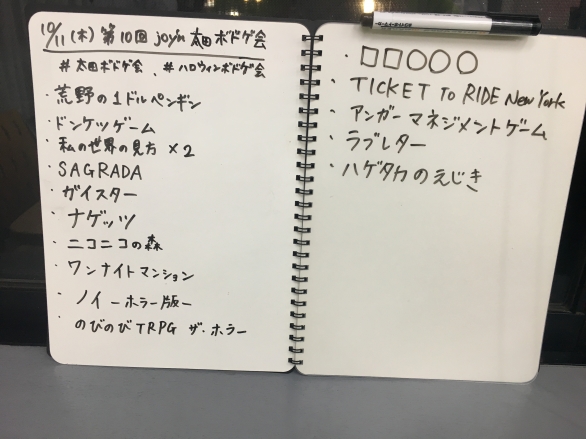 10/11(木) 第10回 joy'n 太田ボドゲ会
#太田ボドゲ会、#ハロウィンボドゲ会
・荒野の1ドルペンギン
・ドンケツゲーム
・私の世界の見方 ×2
・SAGRADA
・ガイスター
・ナゲッツ
・ニコニコの森
・ワンナイトマンション
・ノイーホラー版ー
・のびのびTRPG ザ・ホラー
・□□○○○
・TICKET To RIDE New York
・アンガーマネジメントゲーム
・ラブレター
・ハゲタカのえじき